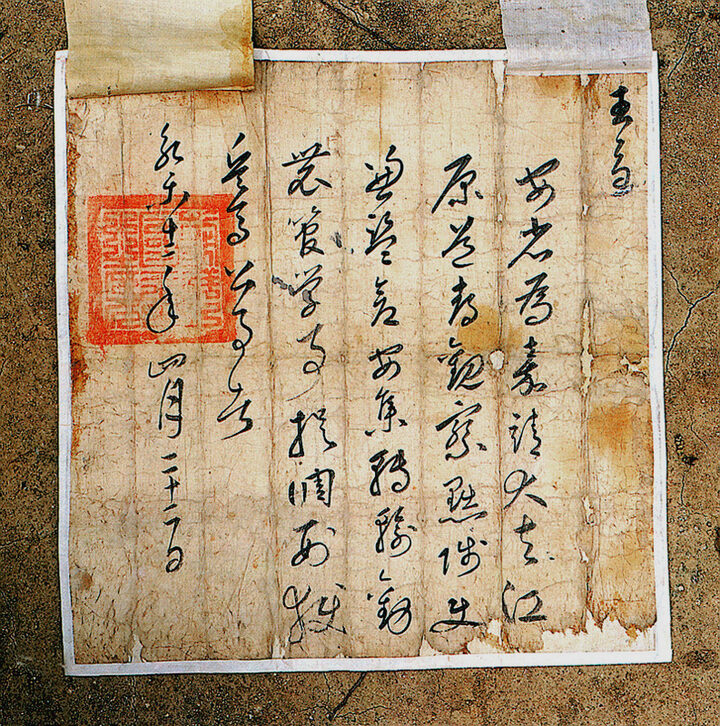 王旨
安省爲嘉靖大夫江
原道都觀察黜陟使
兼監倉安集轉輸勸
農管學事提調刑獄
兵馬公事者
永樂十二年四月二十二日